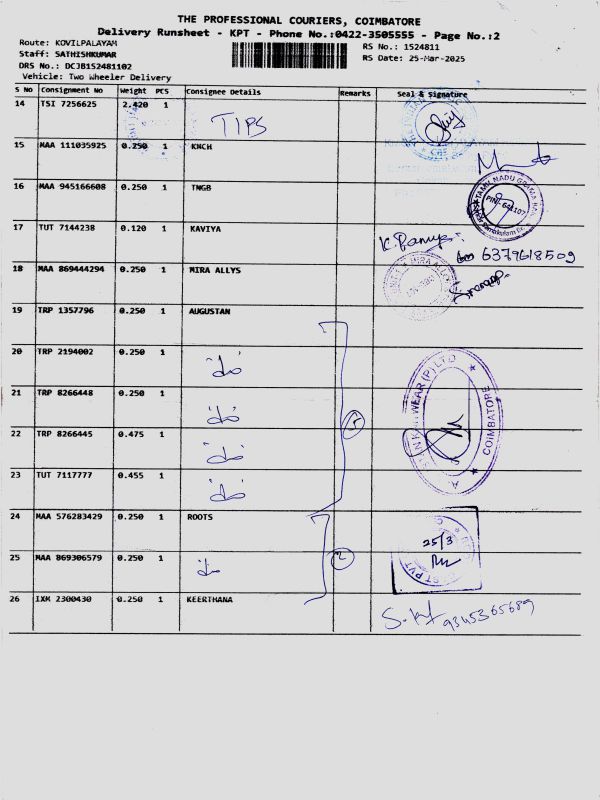 THE PROFESSIONAL COURIERS, COIMBATORE
Delivery Runsheet - KPT - Phone No.:0422-3505555 - Page No.:2
Route: KOVILPALAYAM
Staff: SATHISHKUMAR
DRS No.: DCJB152481102
Vehicle: Two Wheeler Delivery
RS No.: 1524811
RS Date: 25-Mar-2025
S No Consignment No Weight PCS Consignee Details Remarks Seal & Signature
14 TSI 7256625 2.420 1 TIPS
15 MAA 111035925 0.250 1 KNCH
16 MAA 945166608 0.250 1 TNGB
TAMIL NADU GRAMA
17 TUT 7144238 0.120 1 KAVIYA
6379618509
18 MAA 869444294 0.250 1 MIRA ALLYS
19 TRP 1357796 0.250 1 AUGUSTAN
20 TRP 2194002 0.250 1 "do"
21 TRP 8266448 0.250 1 "do"
22 TRP 8266445 0.475 1 "do"
23 TUT 7117777 0.455 1 "do"
5
WEAR (P) LTD
COIMBATORE
24 MAA 576283429 0.250 1 ROOTS
25 MAA 869306579 0.250 1 "do"
2
25/3
26 IXM 2300430 0.250 1 KEERTHANA
9345365689